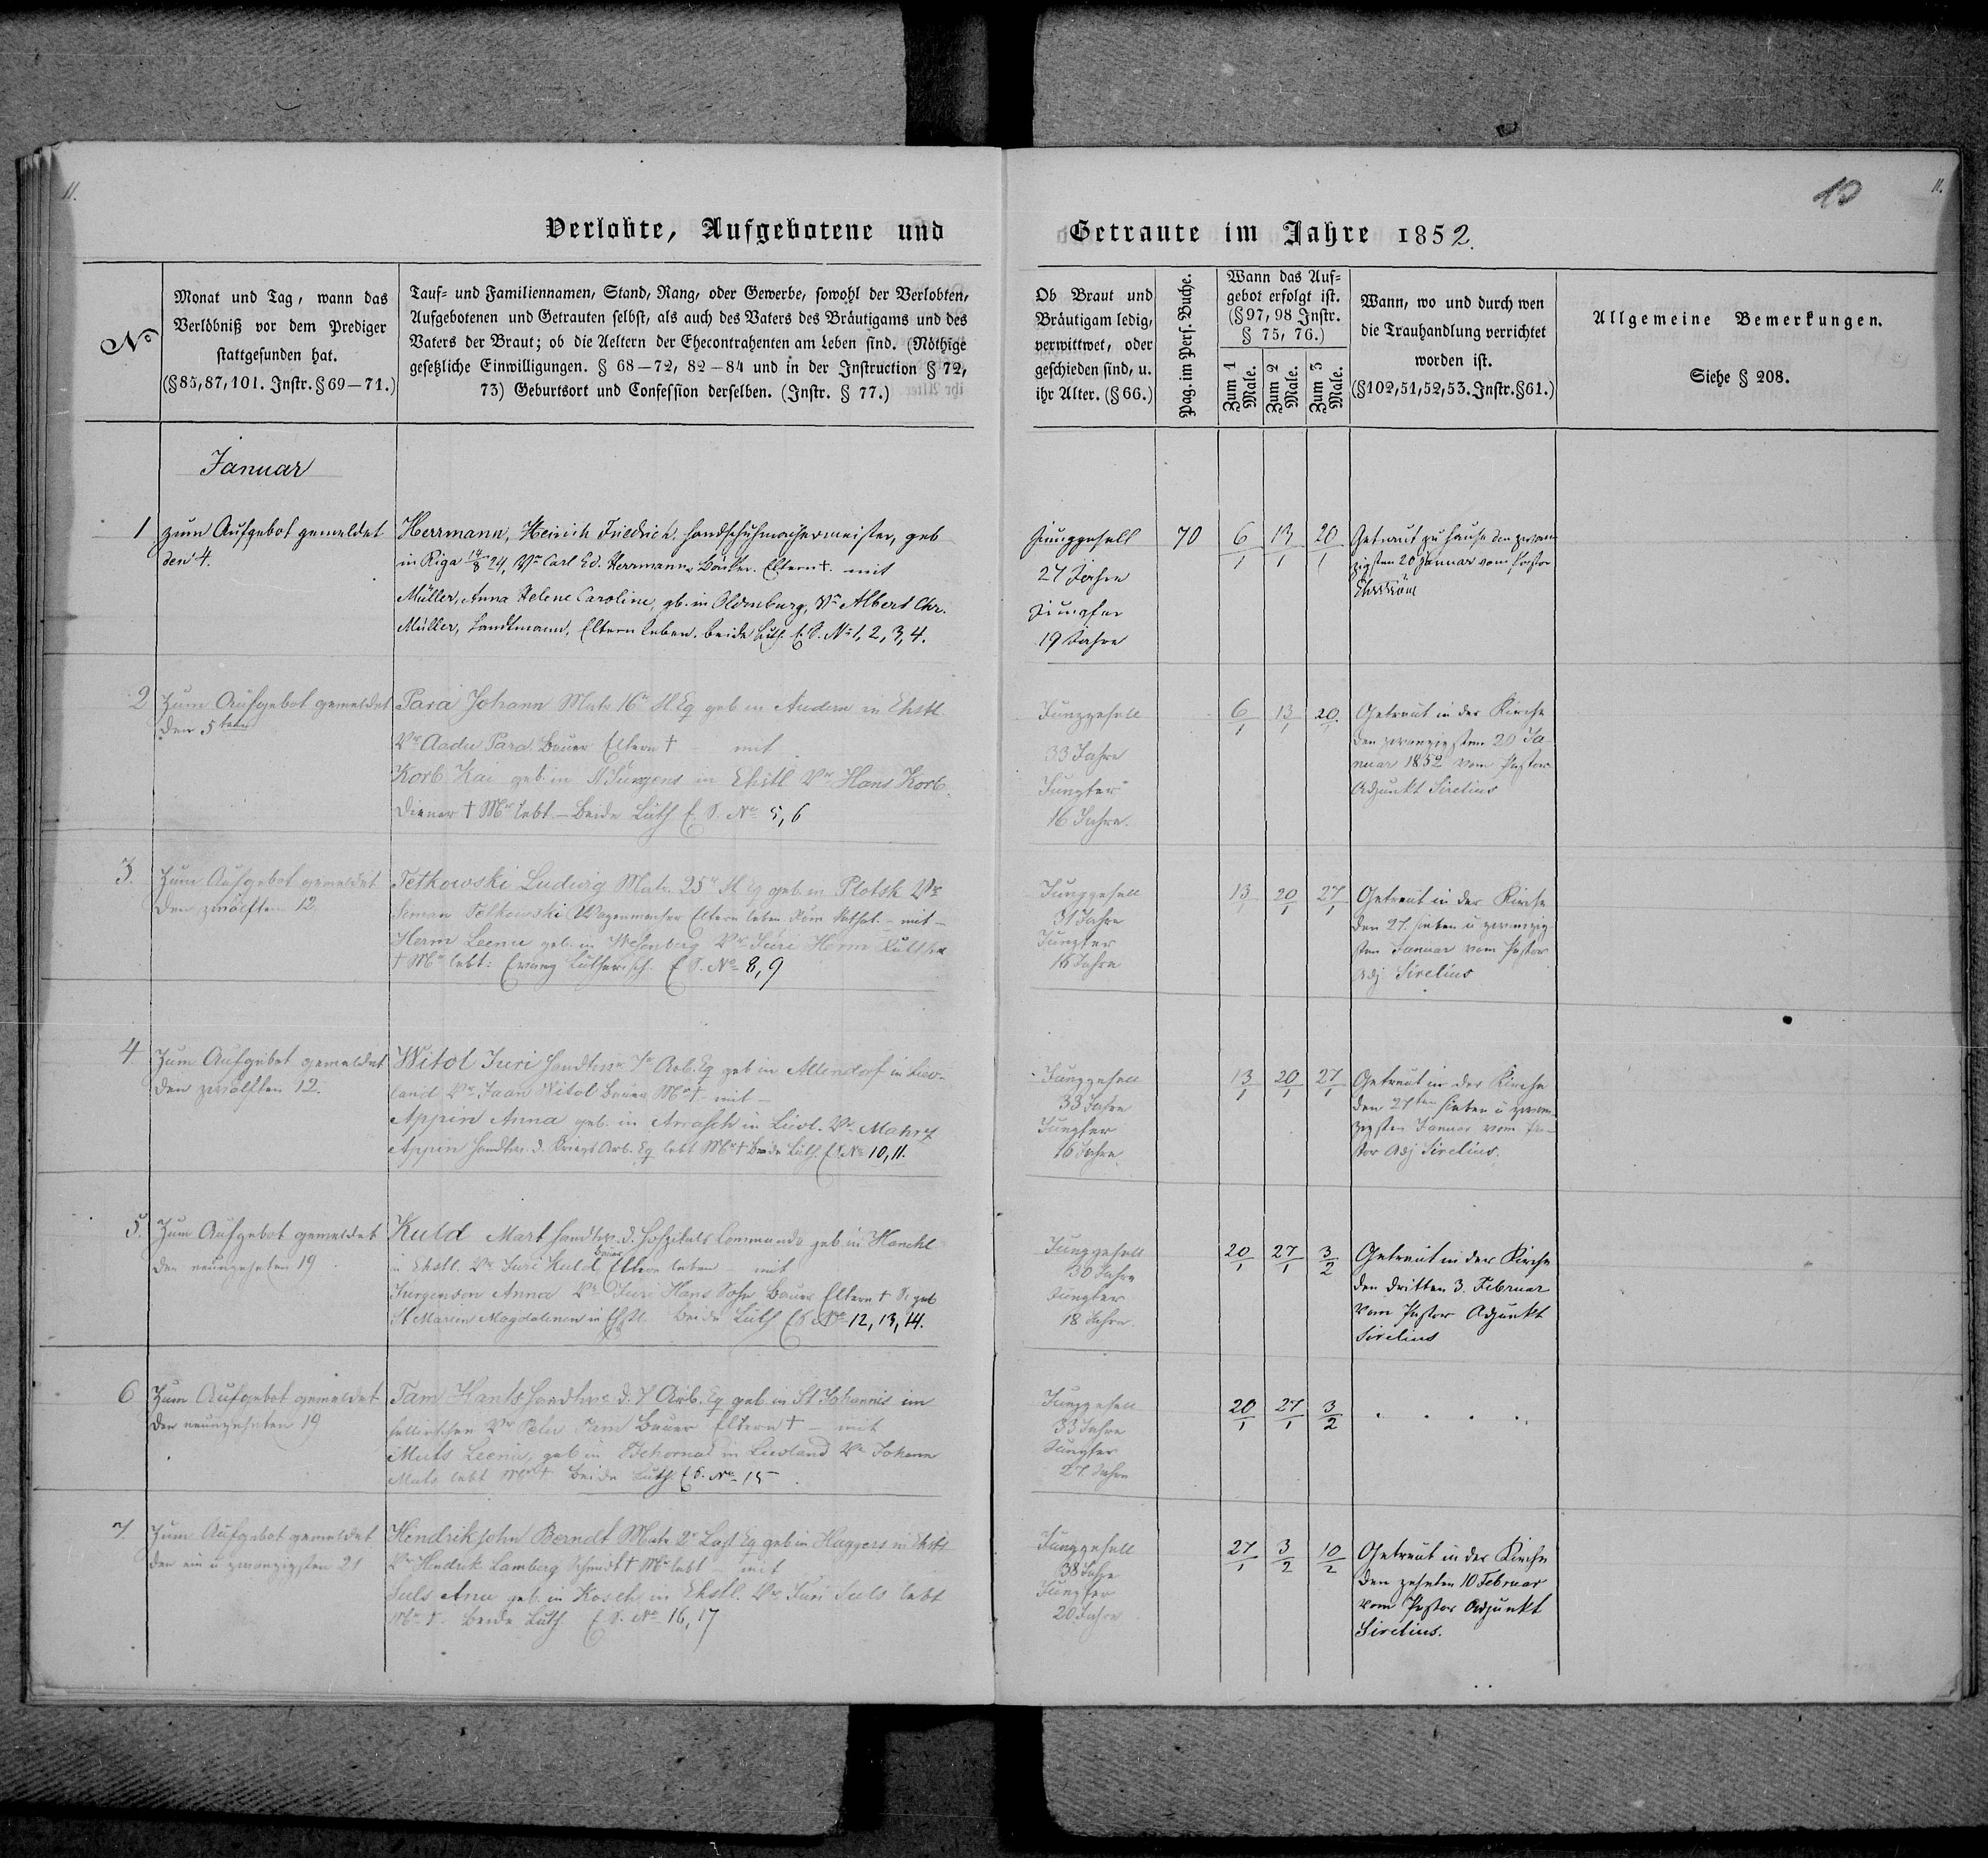 11.
10
11.
Verlobte, Aufgebotene und Getraute im Jahre 1852.
No
Monat und Tag, wann das
Verlöbniß vor dem Prediger
stattgefunden hat.
(§85,87,101. Instr. §69—71.)
Tauf= und Familiennamen, Stand, Rang, oder Gewerbe, sowohl der Verlobten,
Aufgebotenen und Getrauten selbst, als auch des Vaters des Bräutigams und des
Vaters der Braut; ob die Aeltern der Ehecontrahenten am Leben sind. (Nöthige
gesetzliche Einwilligungen. § 68—72, 82—84 und in der Instruction § 72,
73) Geburtsort und Confession derselben. (Instr. § 77.)
Ob Braut und
Bräutigam ledig,
verwittwet, oder
geschieden sind, u.
ihr Alter. (§66.)
Pag. im Pers. Buche.
Wann das Auf=
gebot erfolgt ist.
(§97, 98 Instr.
§ 75, 76.)
Zum 1 Male.
Zum 2 Male.
Zum 3 Male.
Wann, wo und durch wen
die Trauhandlung verrichtet
worden ist.
(§102,51,52,53. Instr. §61.)
Allgemeine Bemerkungen.
Siehe § 208.
Januar
1
zum Aufgebot gemeldet
den 4.
Herrmann, Heinrich Friedrich, Handschuhmachermeister, geb
in Riga 24, Vr Carl Ed. Herrmann, Bäcker. Eltern †. mit
Müller, Anna Helene Caroline, gb. in Oldenburg, Vr Albert Chr.
Müller, Landtmann, Eltern leben. beide Luth. E. S. No 1, 2, 3, 4.
Junggesell
27 Jahre
Jungfer
19 Jahre
70
6/1
13/1
20/1
Getraut zu Hause den zwan
zigsten 20 Januar vom Pastor
Ehrström
2
Zum Aufgebot gemeldet
den 5ten
Para Johann Matr. 16r Fl Eq geb in Audern in Ehstl.
Vr Aadu Para. Bauer Eltern † mit
Korb Kai geb. in St Jürgens in Ehstl Vr Hans Korb.
Diener † Mr lebt.— Beide Luth E. S. No 5, 6
Junggesell
33 Jahre
Jungfer
16 Jahre.
6/1
13/1
20/1
Getraut in der Kirche
den zwanzigsten 20 Ja-
nuar 1852 vom Pastor
Adjunkt Sirelius
3.
Zum Aufgebot gemeldet
den zwölften 12.
Petkowski Ludwig Matr. 25r Fl Eq geb. in Plotsk Vr
Simon Petkowski Wagenmacher Eltern leben Röm Kathol. — mit —
Herm Leenu geb. in Wesenberg Vr Jüri Herm
† Mr lebt: Evang Lutherisch. E. S. No 8, 9
Junggesell
31 Jahre
Jungfer
18 Jahre
13/1
20/1
27/1
Getraut in der Kirche
den 27. sieben u zwanzig
sten Januar vom Pastor
Adj Sirelius
4.
Zum Aufgebot gemeldet
den zwölften 12.
Witol Juri Handtw. 7r Arb. Eq geb in Allendorf in Liev-
land Vr Jaan Witol Bauer Mr † — mit —
Appin Anna geb. in Arrasch in Lievl. Vr Mahrz
Appin Handtw. d. Kriegs Arb. Eq lebt Mr † Beide Luth. E S No 10, 11.
Junggesell
33 Jahre
Jungfer
16 Jahre.
13/1
20/1
27/1
Getraut in der Kirche
den 27ten sieben u zwan
zigsten Januar vom Pa-
stor Adj Sirelius.
5.
Zum Aufgebot gemeldet
den neunzehnten 19
Kuld Mart Handtw. d. Hospitals Commando geb. in Hanehl
in Ehstl. Vr Juri Kuld Bauer Eltern leben — mit
Jurgenson Anna Vr Juri Hans Sohn Bauer Eltern † S. geb
St Marien Magdalenen in Ehstl. Beide Luth E S No 12, 13, 14.
Junggesell
30 Jahre
Jungfer
18 Jahre.
20/1
27/1
3/2
Getraut in der Kirche
den dritten 3. Februar
vom Pastor Adjunkt
Sirelius
6
Zum Aufgebot gemeldet
den neunzehnten 19
Tam Hants Handtw. d. 7 Arb. Eq geb. in St Johannis im
Fellinschen Vr Peter Tam Bauer Eltern † — mit
Muts Leenu, geb in in Lievland Vr Johann
Muts lebt Mr † Beide Luth. E S. No 15.
Junggesell
33 Jahre
Jungfer
27. Jahre
20/1
27/1
3/2
. . . .
7.
Zum Aufgebot gemeldet
den ein u zwanzigsten 21
Hindriksohn Berndt Matr 2r Last Eq geb in Haggers in Ehstl
Vr Hindrik Lamberg Schmidt † Mr lebt — mit
Suls Anu geb. in Kosch in Ehstl. Vr Juri Suls lebt
Mr †. Beide Luth. E. S. No 16, 17
Junggesell
38 Jahre
Jungfer
20 Jahre
27/1
3/2
10/2
Getraut in der Kirche
den zehnten 10 Februar
vom Pastor Adjunkt
Sirelius.